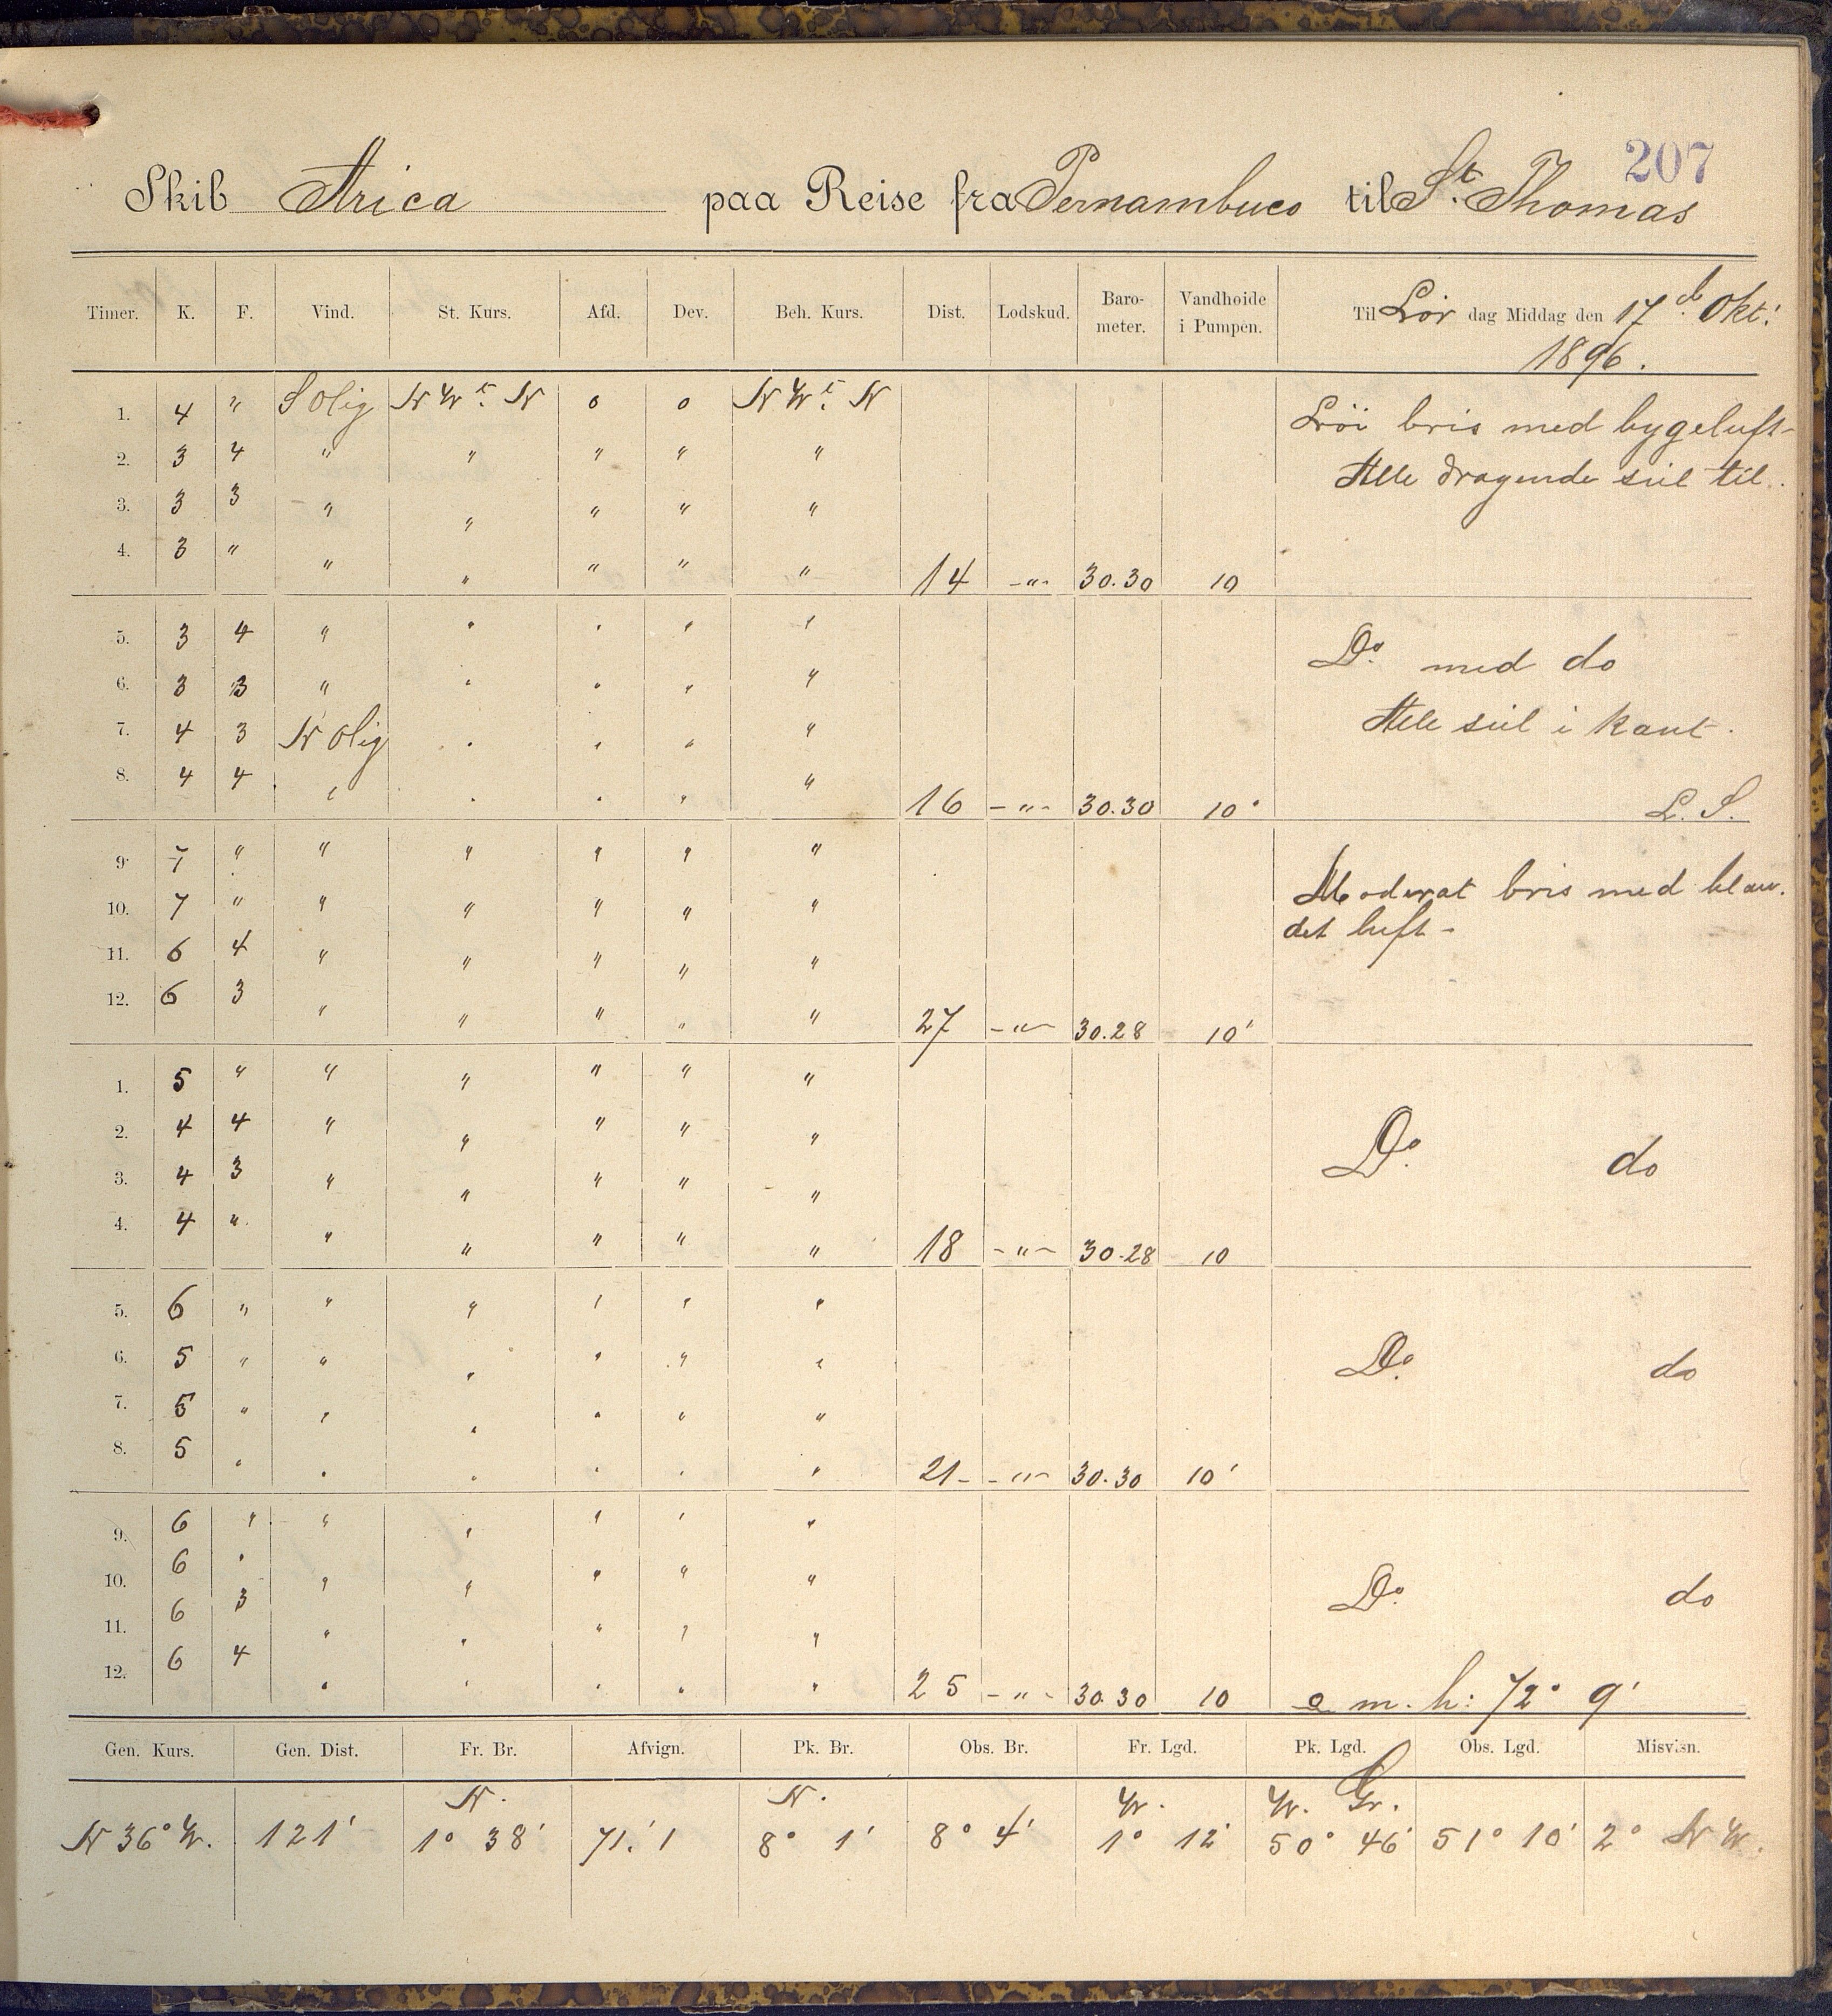 207
Skib Arica paa Reise fra Pernambuco til St. Thomas
Timer. K. F. Vind. St. Kurs. Afd. Dev. Beh. Kurs. Dist. Lodskud. Baro-meter. Vandhøide i Pumpen. Til Lør dag Middag den 17d. Okt.
1896.
1. 4 " S Olig NW t. N 0 0 NW t. N Løi bris med bygeluft-
2. 3 4 " " " " " Alle dragende seil til.
3. 3 3 " " " " "
4. 3 " " " " " " 14 -"- 30.30 10
5. 3 4 " " " " " Do. med do
6. 3 3 " " " " "
7. 4 3 N Olig " " " " Alle seil i kant.
8. 4 4 " " " " " 16 -"- 30.30 10" L. S.
9. 7 " " " " " " Moderat bris med blan.
10. 7 " " " " " " det luft-
11. 6 4 " " " " "
12. 6 3 " " " " " 27 -"- 30.28 10'
1. 5 " " " " " "
2. 4 4 " " " " " Do. do
3. 4 3 " " " " "
4. 4 " " " " " " 18 -"- 30.28 10
5. 6 " " " " " "
6. 5 " " " " " " Do. do
7. 5 " " " " " "
8. 5 " " " " " " 21- -"- 30.30 10'
9. 6 " " " " " "
10. 6 " " " " " " Do. do
11. 6 3 " " " " "
12. 6 4 " " " " " 25 -"- 30.30 10 m. h: 72° 9'
Gen. Kurs. Gen. Dist. Fr. Br. Afvign. Pk. Br. Obs. Br. Fr. Lgd. Pk. Lgd. Obs. Lgd. Misvisn.
N. N. W. W. Gr.
N 36° W. 121' 1° 38' 71.'1 8° 1' 8° 4' 1° 12' 50° 46' 51° 10' 2° NW.